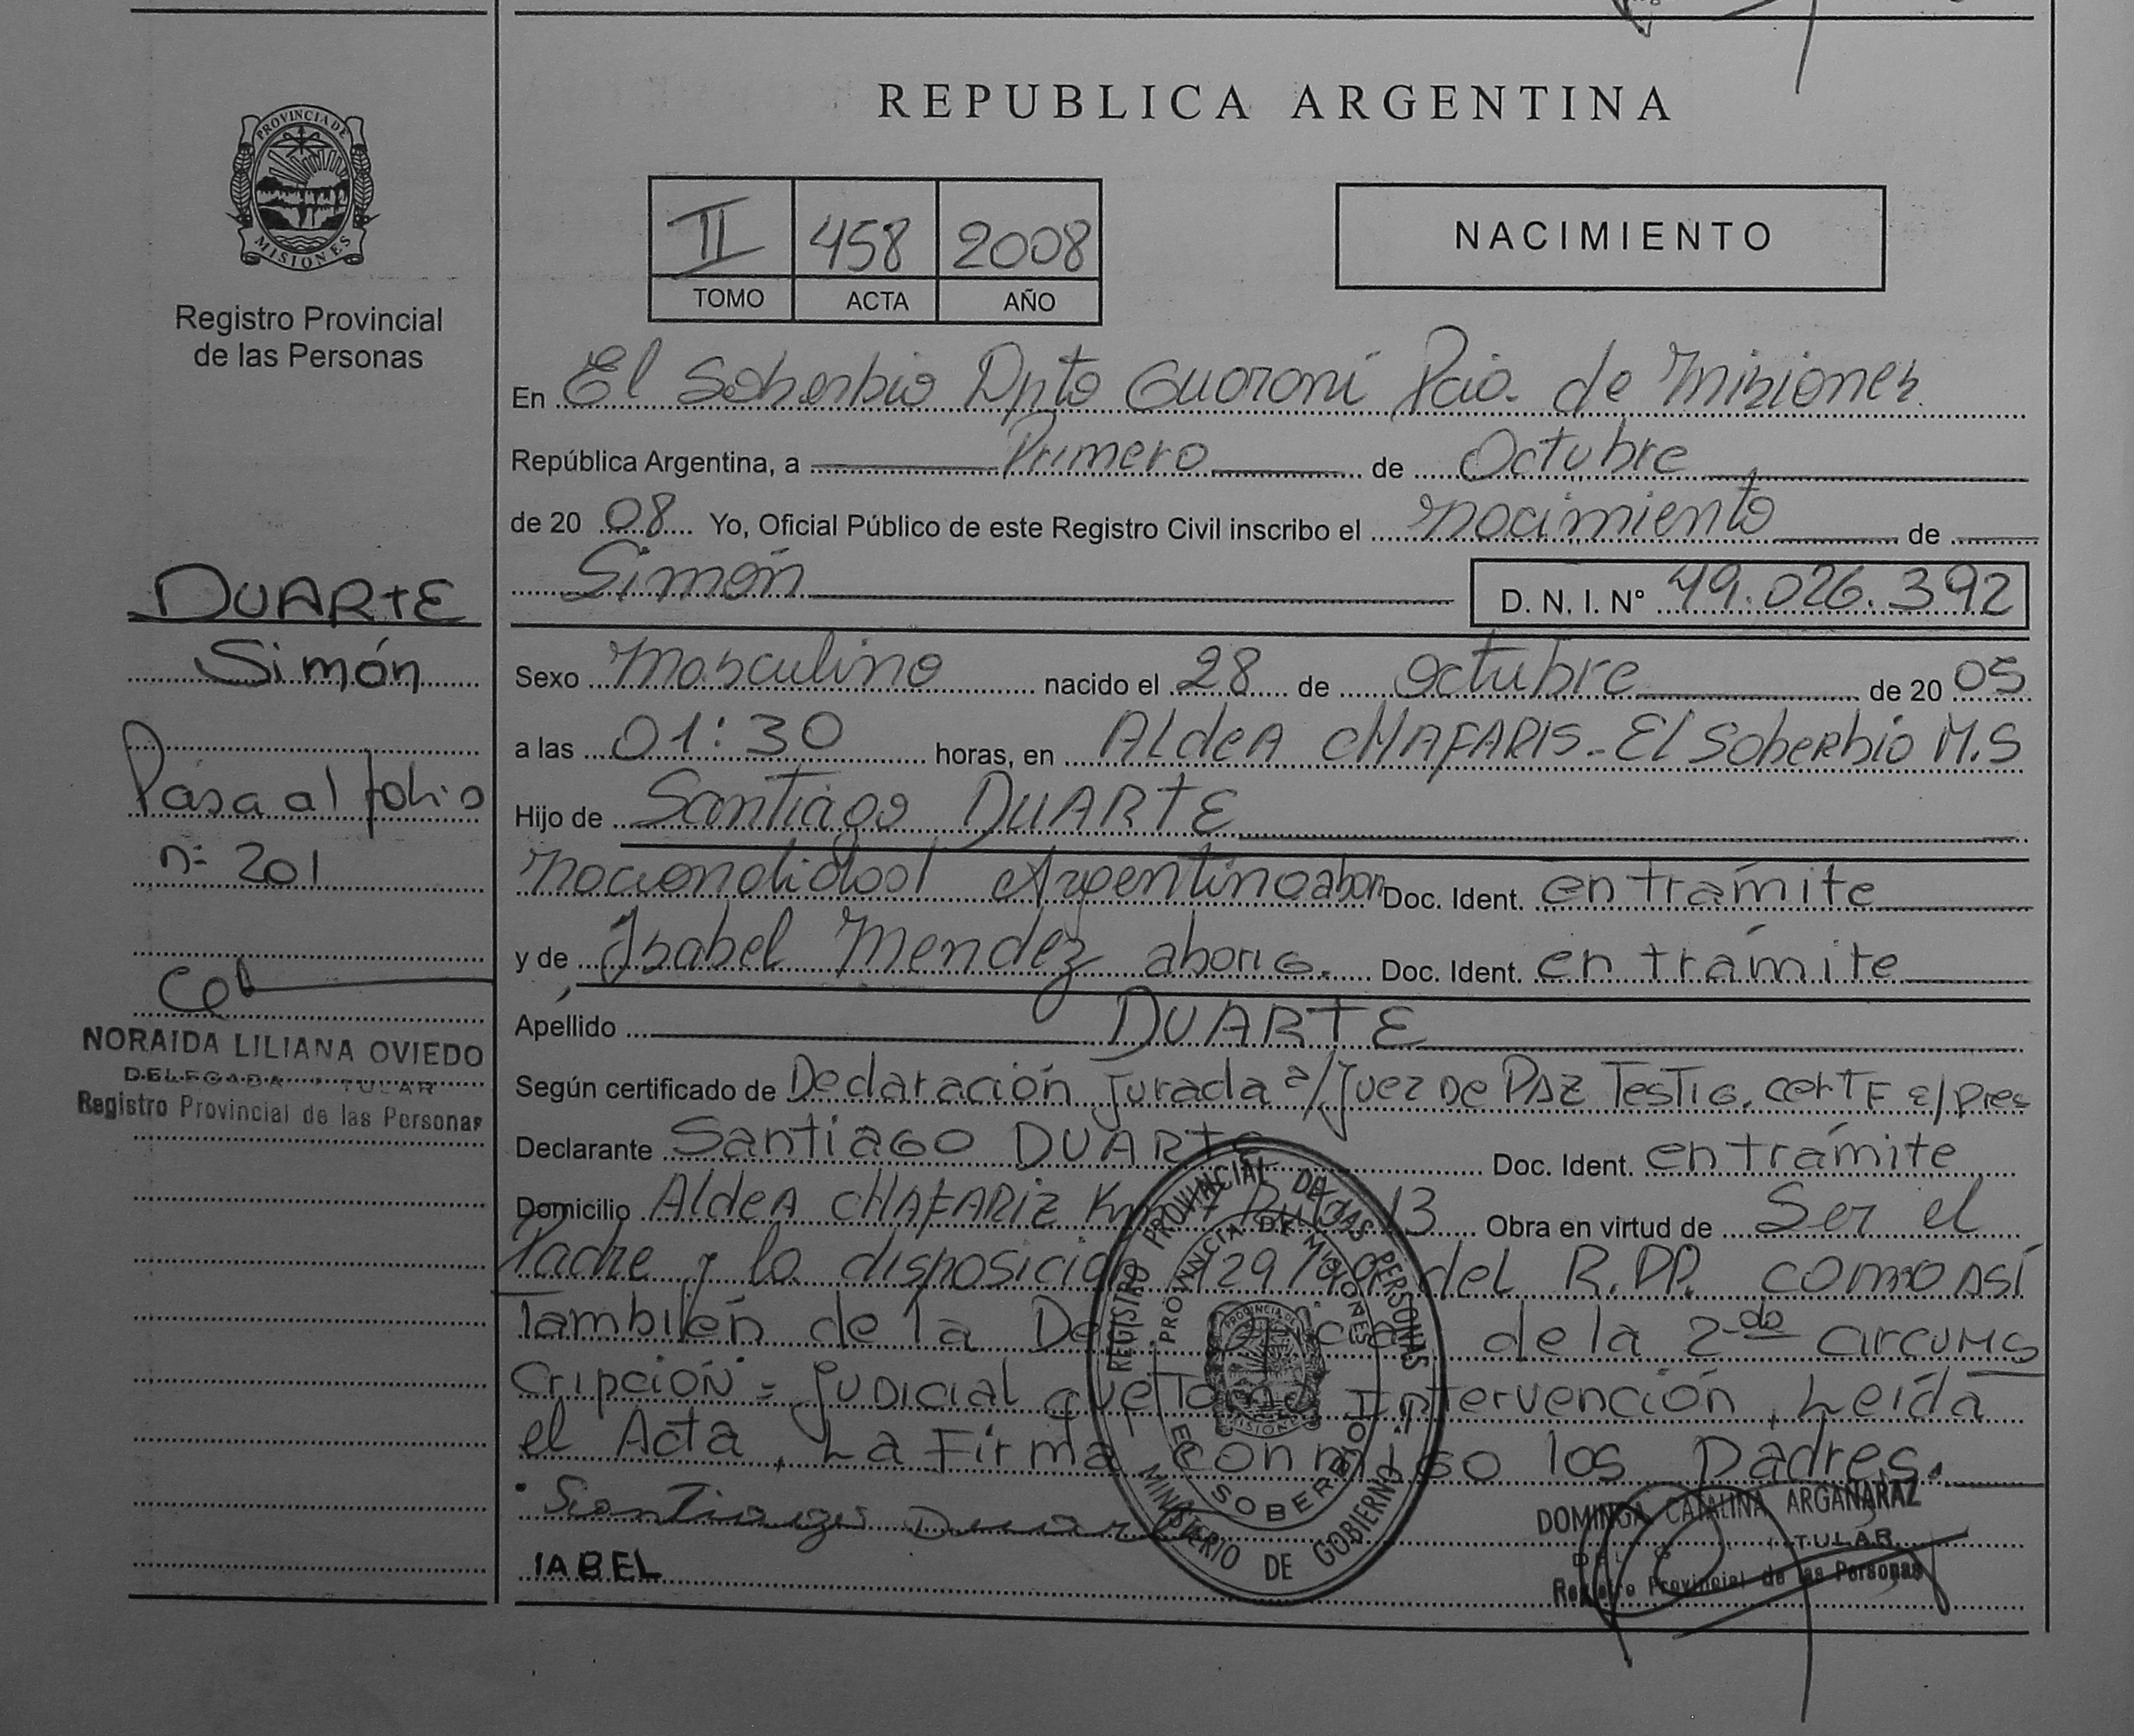 REPUBLICA ARGENTINA
PROVINCIA DE
MISIONES
Registro Provincial
de las Personas
II 458 2008
TOMO ACTA AÑO
NACIMIENTO
En El Soberbio Dpto Guaraní Pcia. de Misiones
República Argentina, a Primero de Octubre
de 20 08 Yo, Oficial Público de este Registro Civil inscribo el nacimiento de
Simón D. N. I. N° 49.026.392
DUARTE
Simón
Pasa al folio
n° 201
NORAIDA LILIANA OVIEDO
DELEGADA TITULAR
Registro Provincial de las Personas
Sexo Masculino nacido el 28 de octubre de 20 05
a las 01:30 horas, en Aldea CHAFARIS - El Soberbio M.S
Hijo de Santiago DUARTE
Nacionalidad Argentino abor Doc. Ident. en trámite
y de Isabel Mendez aborig. Doc. Ident. en trámite
Apellido DUARTE
Según certificado de Declaración Jurada a/Juez De Paz Testig. cert F e/ pres
Declarante Santiago DUARTE Doc. Ident. en trámite
Domicilio Aldea CHAFARIZ Km Ruta 13 Obra en virtud de Ser el
Padre y la disposición del R.PP. como así
También de la de la 2da circuns
cripción = Judicial que Tomó Intervención, Leída
el Acta, La Firma conmigo los Padres.
Santiago Duarte
IABEL
REGISTRO PROVINCIAL DE LAS PERSONAS
PROVINCIA DE MISIONES
PROVINCIA DE
MISIONES
EL SOBERBIO
MINISTERIO DE GOBIERNO
DOMINGA CATALINA ARGAÑARAZ
TITULAR
Registro Provincial de las Personas